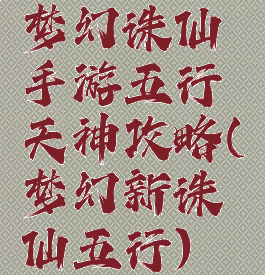 梦幻诛仙
手游五行
天神攻略(
梦幻新诛
仙五行)